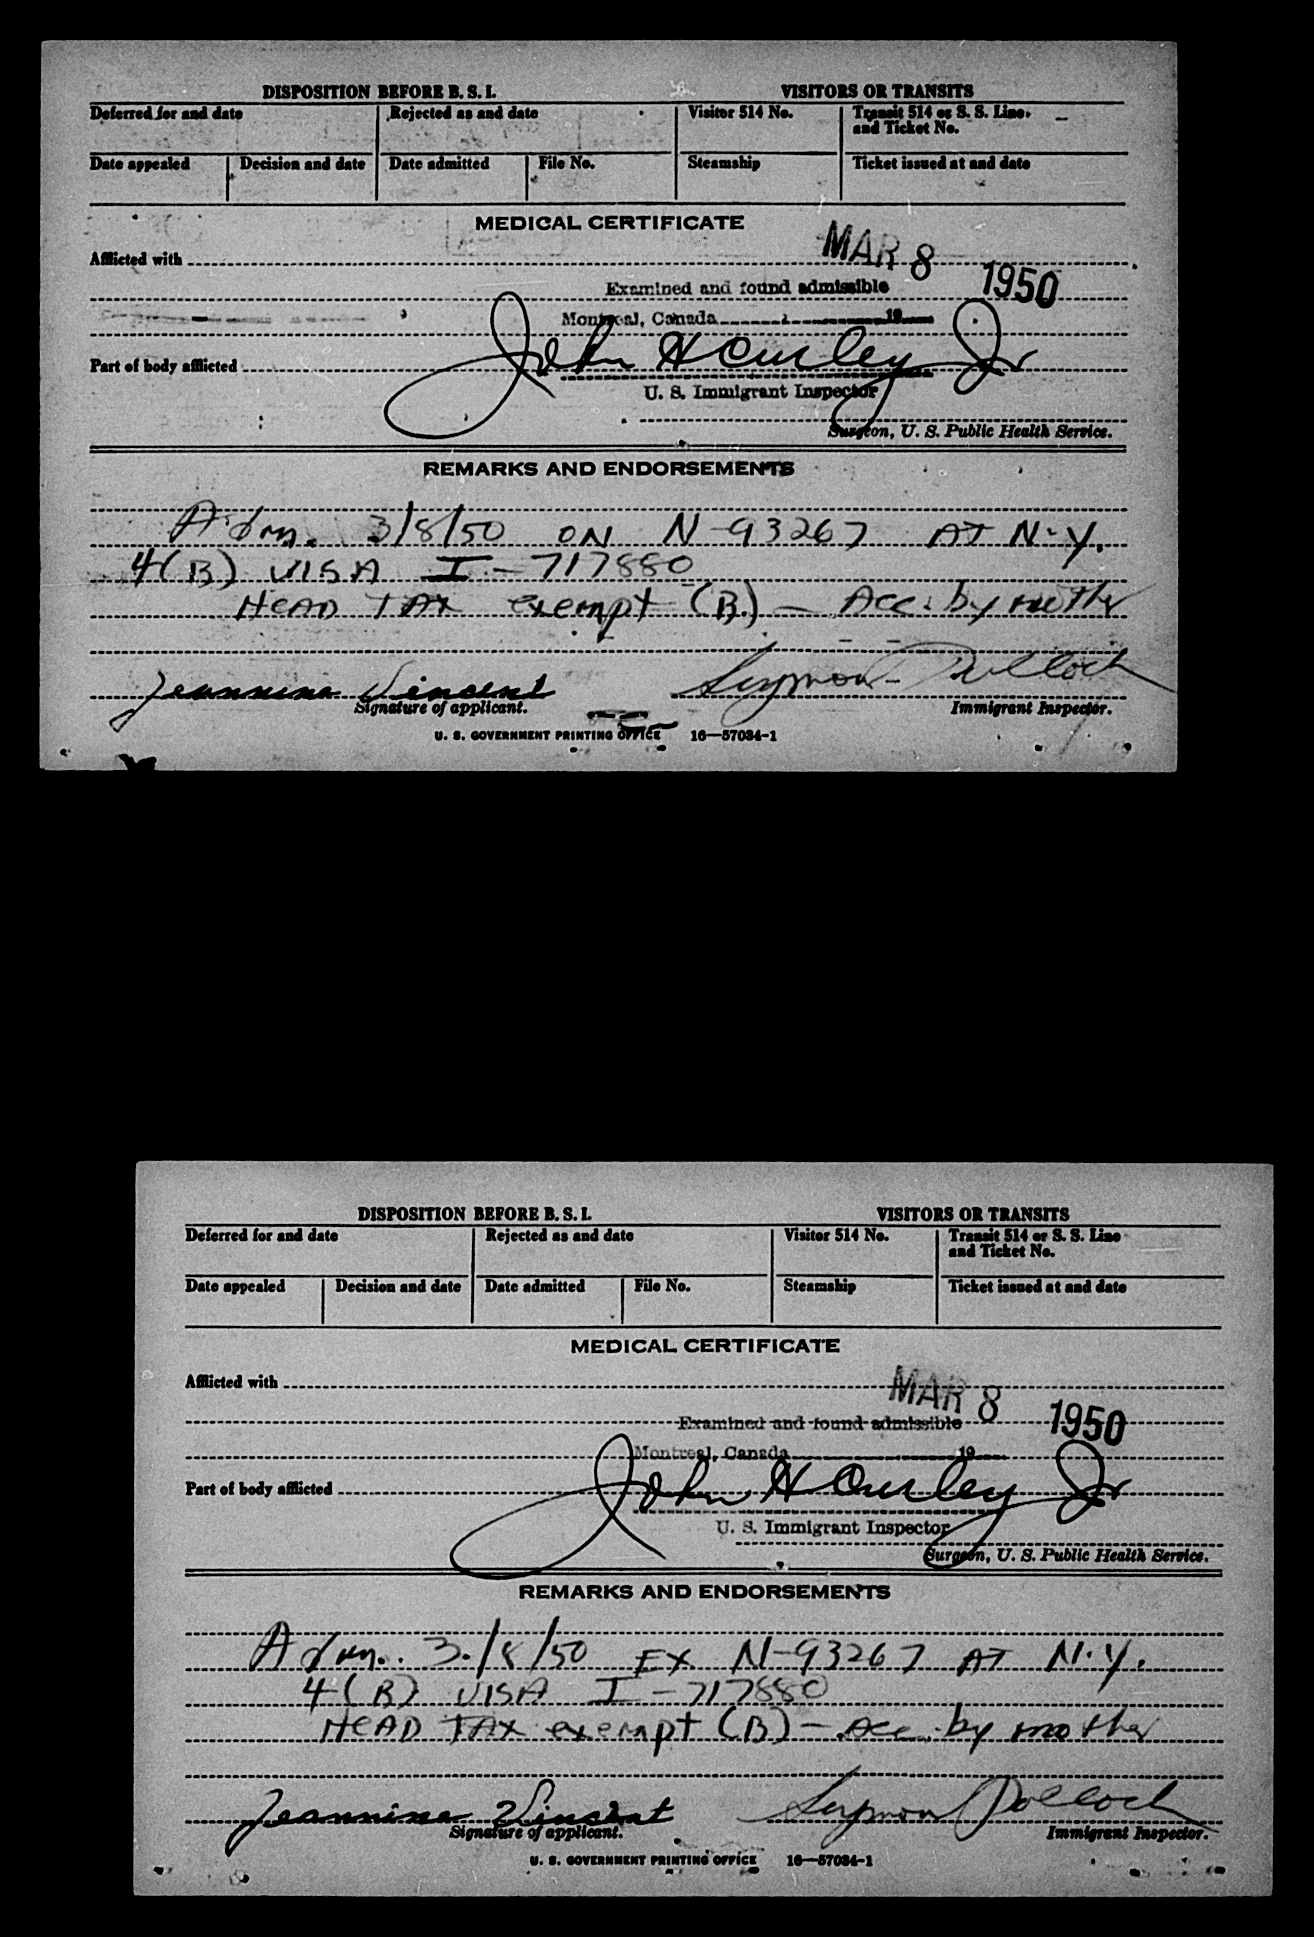 DISPOSITION BEFORE B. S. I. VISITORS OR TRANSITS
Deferred for and date Rejected as and date Visitor 514 No. Transit 514 or S. S. Line
and Ticket No.
Date appealed Decision and date Date admitted File No. Steamship Ticket issued at and date
MEDICAL CERTIFICATE
MAR 8 1950
Afflicted with
Examined and found admissible
Montreal, Canada 19
John H Curley Jr
Part of body afflicted
U. S. Immigrant Inspector
Surgeon, U. S. Public Health Service.
REMARKS AND ENDORSEMENTS
Adm. 3/8/50 ON N-93267 AT N.Y.
4(B) VISA I-717880
HEAD TAX exempt (B.) - Acc. by mother
Jeannine Vincent Seymour Pollock
Signature of applicant. Immigrant Inspector.
U. S. GOVERNMENT PRINTING OFFICE 16—57034-1
DISPOSITION BEFORE B. S. I. VISITORS OR TRANSITS
Deferred for and date Rejected as and date Visitor 514 No. Transit 514 or S. S. Line
and Ticket No.
Date appealed Decision and date Date admitted File No. Steamship Ticket issued at and date
MEDICAL CERTIFICATE
MAR 8 1950
Afflicted with
Examined and found admissible
Montreal, Canada 19
John H Curley Jr
Part of body afflicted
U. S. Immigrant Inspector
Surgeon, U. S. Public Health Service.
REMARKS AND ENDORSEMENTS
Adm. 3/8/50 EX N-93267 AT N.Y.
4(B) VISA I-717880
HEAD TAX exempt (B) - Acc. by mother
Jeannine Vincent Seymour Pollock
Signature of applicant. Immigrant Inspector.
U. S. GOVERNMENT PRINTING OFFICE 16—57034-1